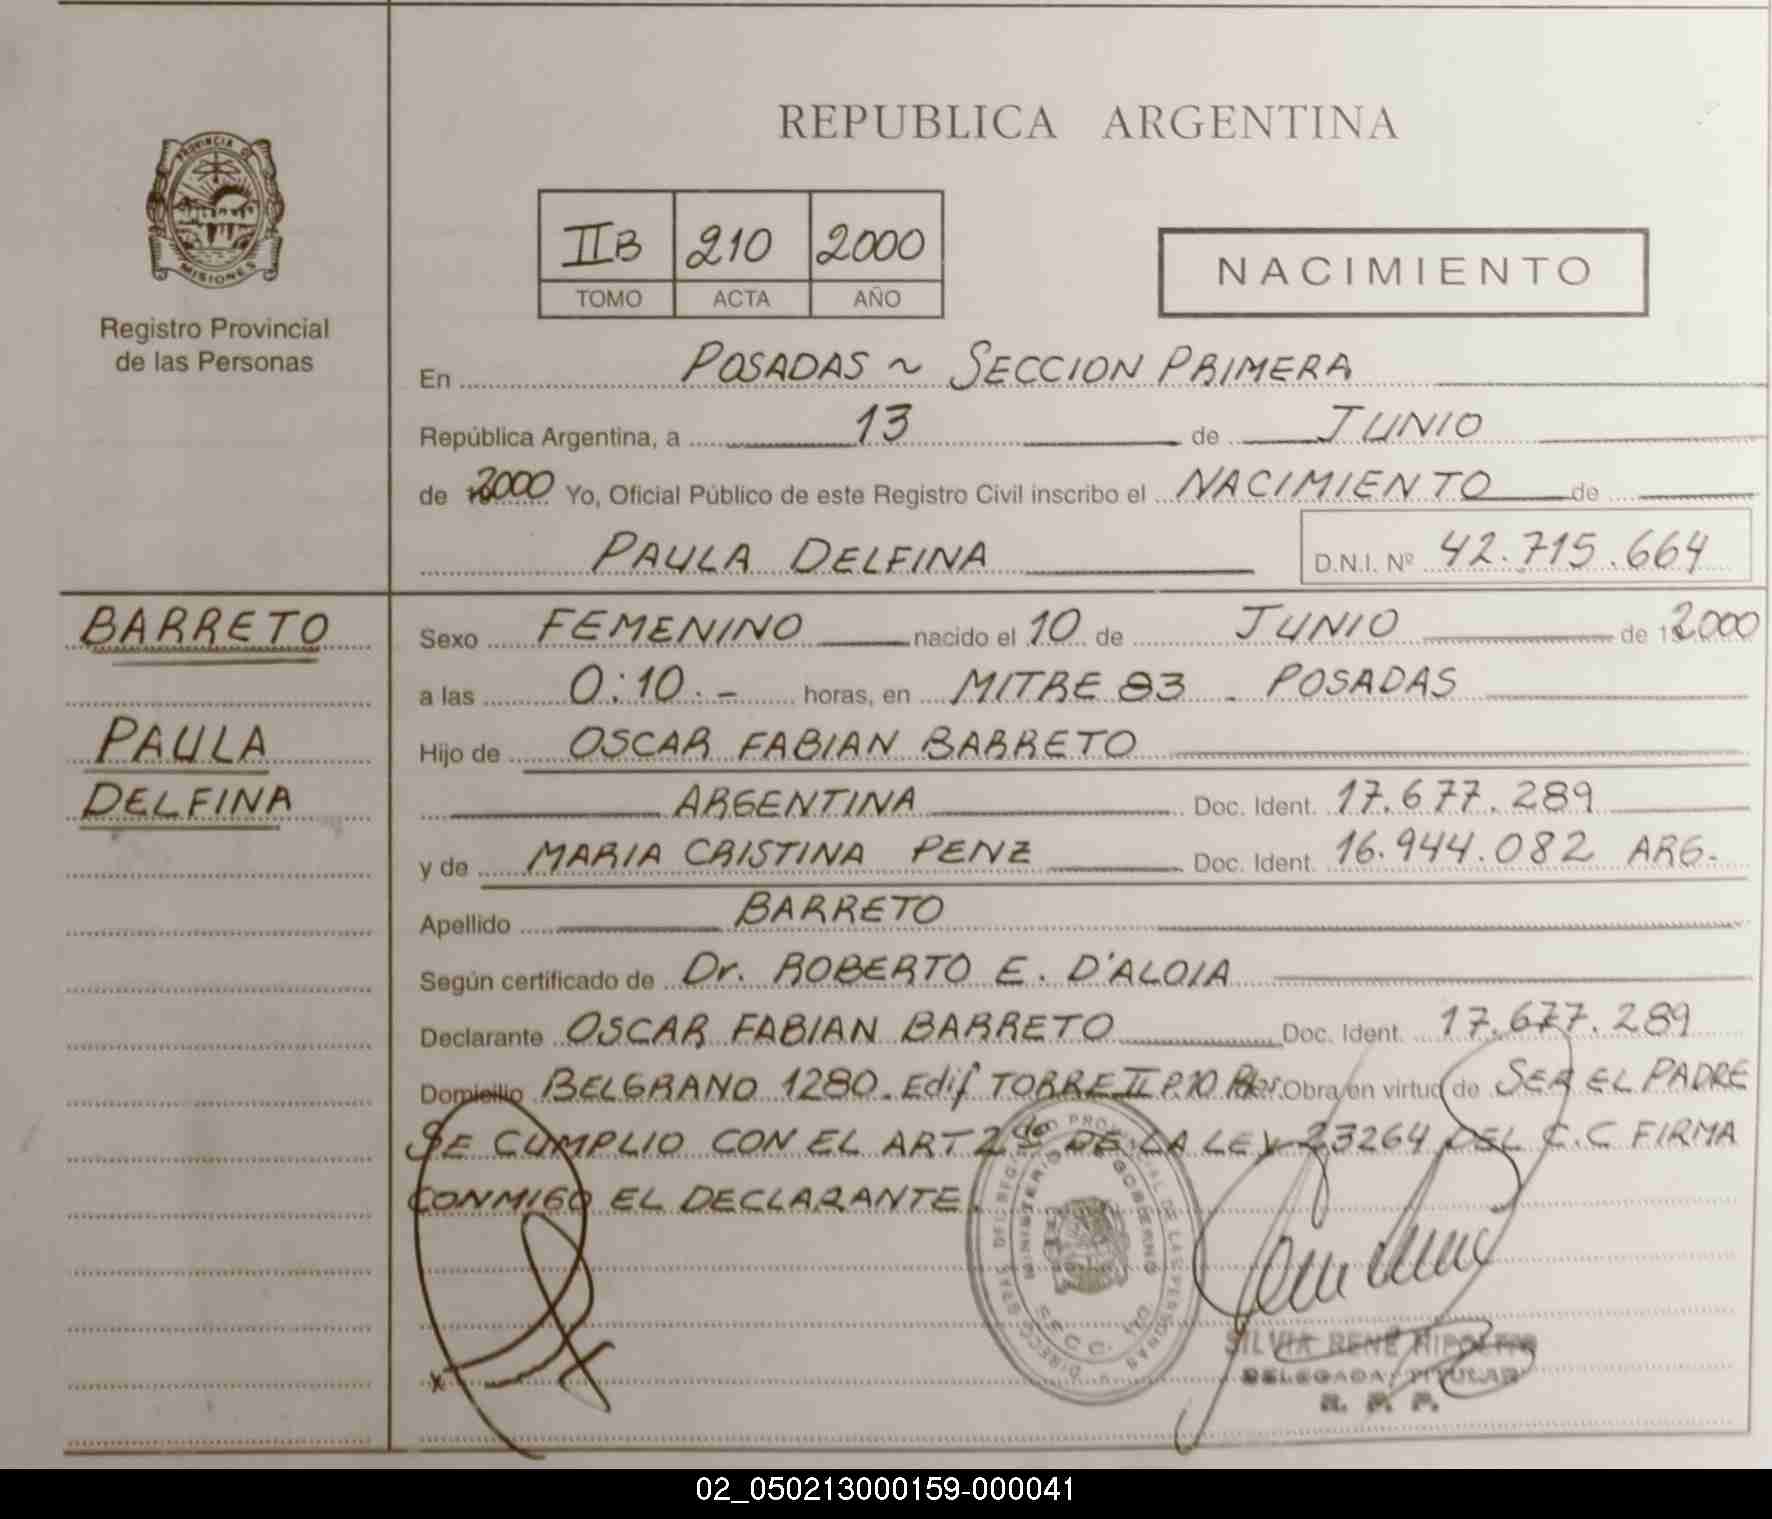 REPUBLICA ARGENTINA
PROVINCIA DE
MISIONES
Registro Provincial
de las Personas
IIB 210 2000
TOMO ACTA AÑO
NACIMIENTO
En POSADAS ~ SECCION PRIMERA
República Argentina, a 13 de JUNIO
de 2000 Yo, Oficial Público de este Registro Civil inscribo el NACIMIENTO de
PAULA DELFINA
D.N.I. Nº 42.715.664
BARRETO
PAULA
DELFINA
Sexo FEMENINO nacido el 10 de JUNIO de 2000
a las 0:10.- horas, en MITRE 83 - POSADAS
Hijo de OSCAR FABIAN BARRETO
ARGENTINA Doc. Ident. 17.677.289
y de MARIA CRISTINA PENZ Doc. Ident. 16.944.082 ARG.
Apellido BARRETO
Según certificado de Dr. ROBERTO E. D'ALOIA
Declarante OSCAR FABIAN BARRETO Doc. Ident. 17.677.289
Domicilio BELGRANO 1280. Edif TORRE II P.10 Obra en virtud de SER EL PADRE
SE CUMPLIO CON EL ART 2do DE LA LEY 23264 DEL C.C FIRMA
CONMIGO EL DECLARANTE.
MINISTERIO DE GOBIERNO
SILVIA RENÉ HIPOLITO
DELEGADA TITULAR
R. P. P.
02_050213000159-000041